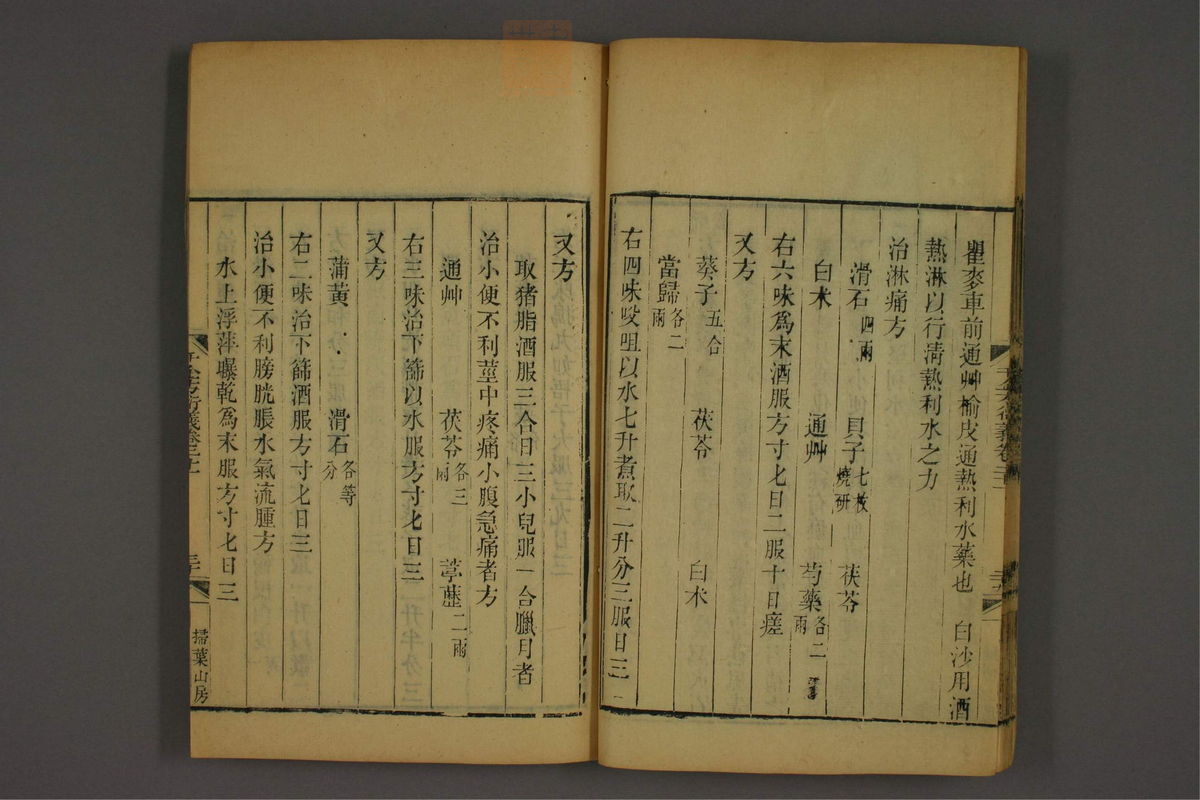 瞿麥車前通艸榆皮通熱利水藥也 白沙用酒
熱淋以行清熱利水之力
治淋痛方
滑石四兩 貝子七枚燒研 茯苓
白术 通艸 芍藥各二兩
右六味爲末酒服方寸匕日二服十日瘥
又方
葵子五合 茯苓 白术
當歸各二兩
右四味㕮咀以水七升煮取二升分三服日三
又方
取猪脂酒服三合日三小兒服一合臘月者
治小便不利莖中疼痛小腹急痛者方
通艸 茯苓各三兩 葶藶二兩
右三味治下篩以水服方寸匕日三
又方
蒲黃 滑石各等分
右二味治下篩酒服方寸匕日三
治小便不利膀胱脹水氣流腫方
水上浮萍曝乾爲末服方寸匕日三
掃葉山房